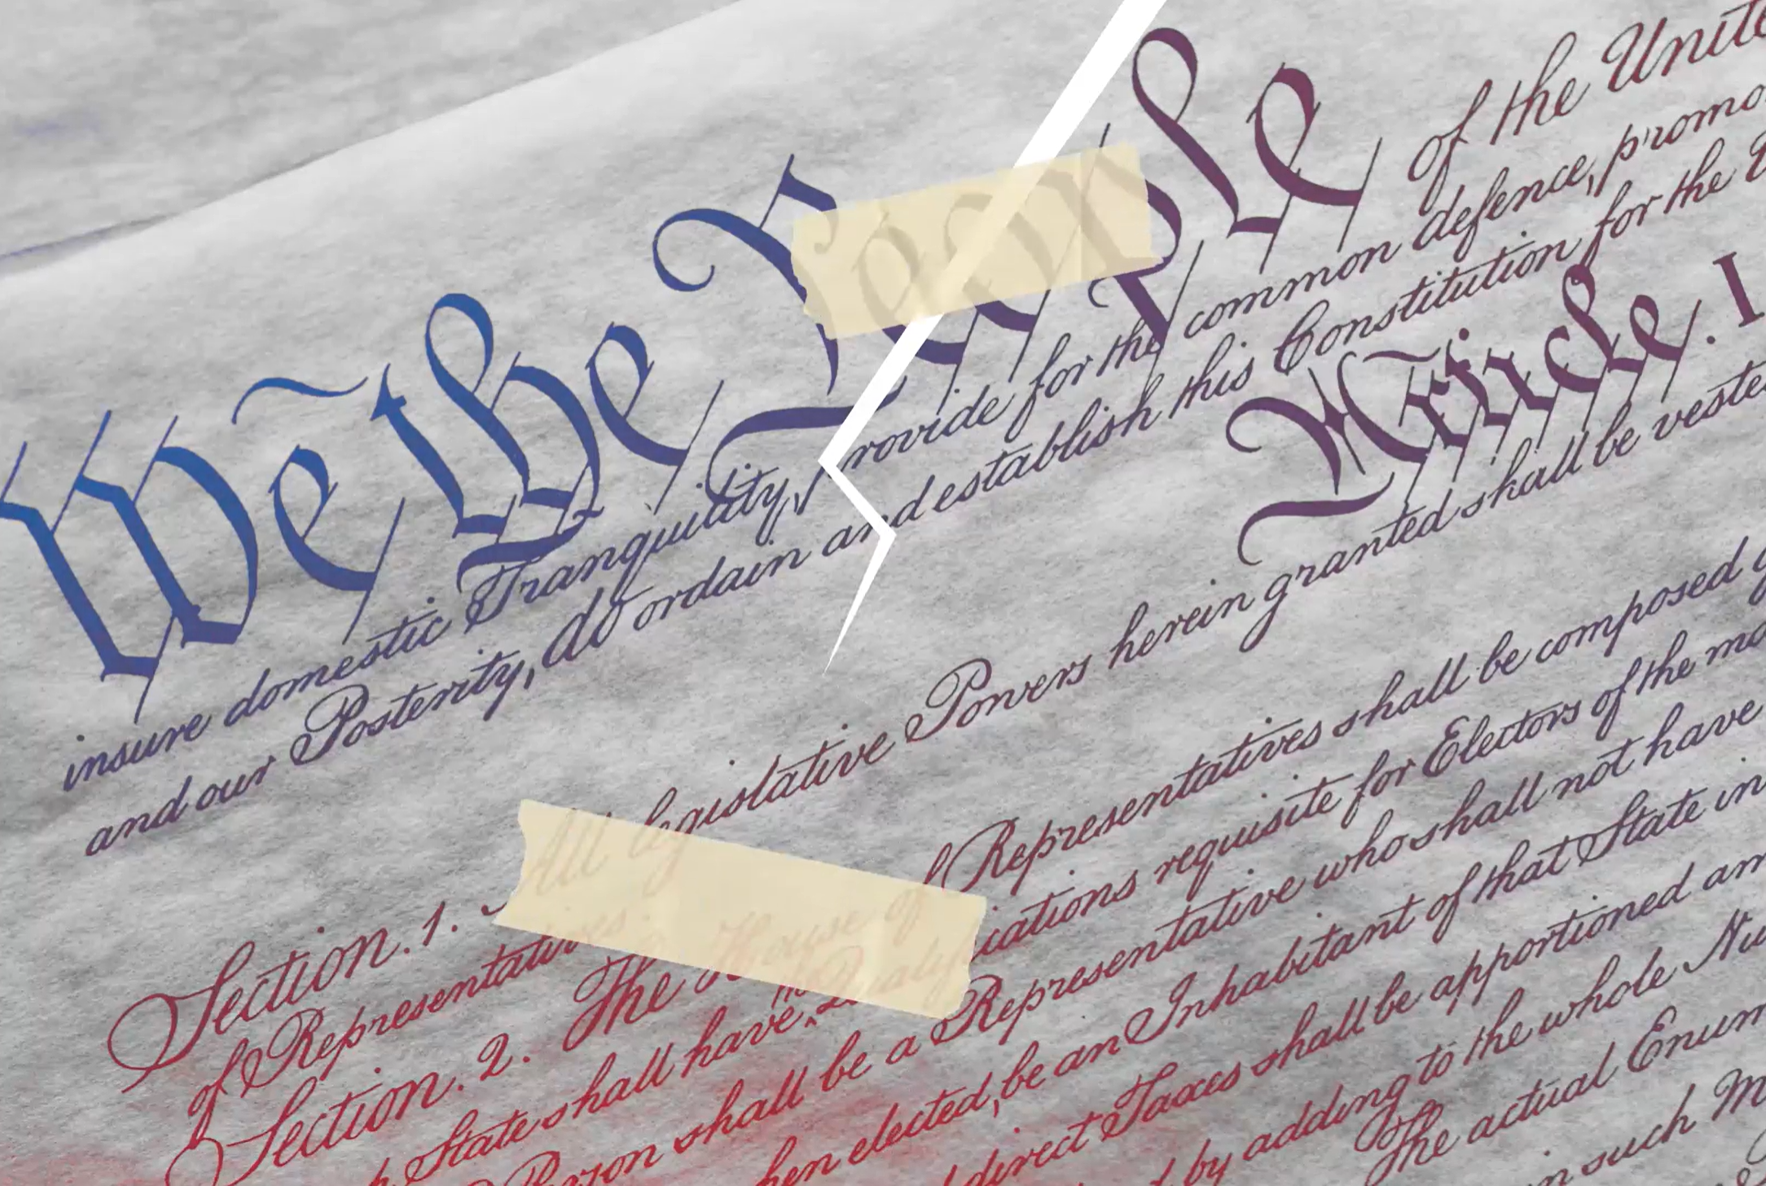 We the People of the Unite
insure domestic Tranquility, provide for the common defence, promo
and our Posterity, do ordain and establish this Constitution for the U
Article. I
Section. 1. All legislative Powers herein granted shall be veste
of Representatives.
Section. 2. The House of Representatives shall be composed
State shall have the Qualifications requisite for Electors of the mo
Person shall be a Representative who shall not have
hen elected, be an Inhabitant of that State in
direct Taxes shall be apportioned am
by adding to the whole Nu
The actual Enum
in such M